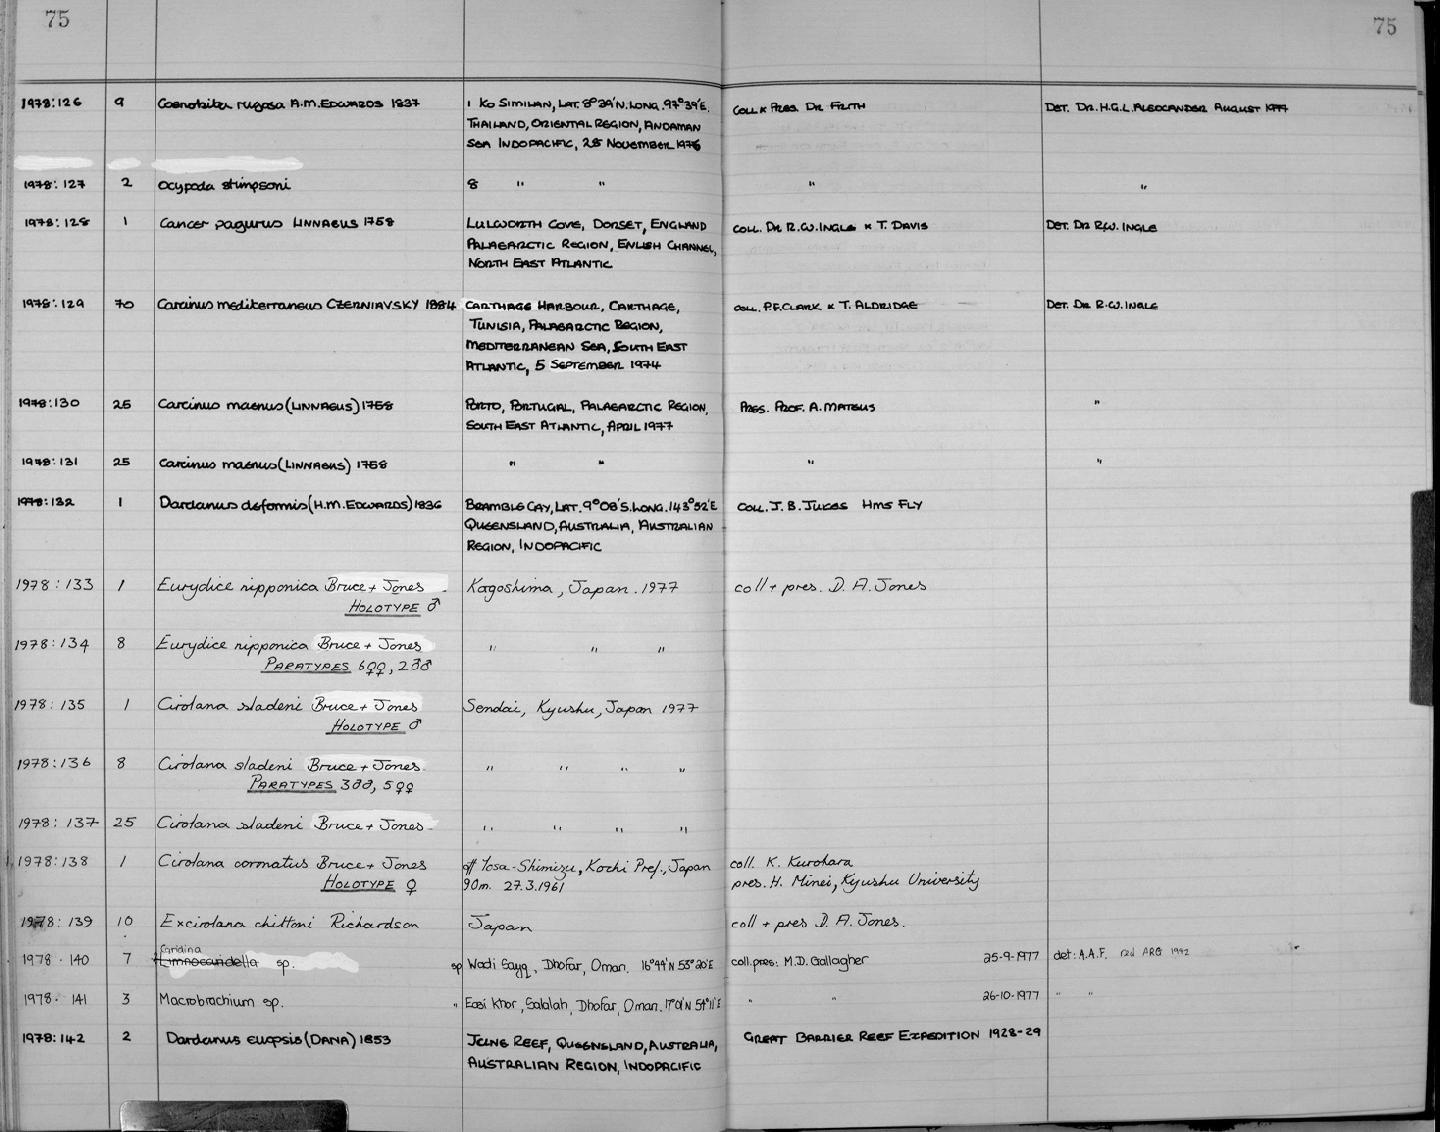 75
75
1978:126 9 Coenobita rugosa A.M. EDWARDS 1837 1 KO SIMILAN, LAT. 8°39'N. LONG. 97°39'E. COLL & PRES. DR FRITH DET. DR. H.G.L. ALEXANDER AUGUST 1977
THAILAND, ORIENTAL REGION, ANDAMAN
SEA INDOPACIFIC, 28 NOVEMBER 1976
1978:127 2 Ocypoda stimpsoni 8 " " " "
1978:128 1 Cancer pagurus LINNAEUS 1758 LULWORTH COVE, DORSET, ENGLAND COLL. DR R.W. INGLE & T. DAVIS DET. DR R.W. INGLE
PALAEARCTIC REGION, ENLISH CHANNEL,
NORTH EAST ATLANTIC
1978:129 70 Carcinus mediterraneus CZERNIAVSKY 1884 CARTHAGE HARBOUR, CARTHAGE, COLL. P.F. CLARK & T. ALDRIDGE DET. DR R.W. INGLE
TUNISIA, PALAEARCTIC REGION,
MEDITERRANEAN SEA, SOUTH EAST
ATLANTIC, 5 SEPTEMBER 1974
1978:130 25 Carcinus maenus (LINNAEUS) 1758 PORTO, PORTUGAL, PALAEARCTIC REGION, PRES. PROF. A. MATEUS "
SOUTH EAST ATLANTIC, APRIL 1977
1978:131 25 Carcinus maenus (LINNAEUS) 1758 " " " "
1978:132 1 Dardanus deformis (H.M. EDWARDS) 1836 BRAMBLE CAY, LAT. 9°08'S. LONG. 143°52'E COLL. J. B. JUKES HMS FLY
QUEENSLAND, AUSTRALIA, AUSTRALIAN
REGION, INDOPACIFIC
1978:133 1 Eurydice nipponica Bruce + Jones Kagoshima, Japan. 1977 coll + pres. D. A. Jones
HOLOTYPE ♂
1978:134 8 Eurydice nipponica Bruce + Jones " " "
PARATYPES 6♀♀, 2♂♂
1978:135 1 Cirolana sladeni Bruce + Jones Sendai, Kyushu, Japan 1977
HOLOTYPE ♂
1978:136 8 Cirolana sladeni Bruce + Jones. " " " "
PARATYPES 3♂♂, 5♀♀
1978:137 25 Cirolana sladeni Bruce + Jones " " " "
1978:138 1 Cirolana cornatus Bruce + Jones off Tosa-Shimizu, Kochi Pref., Japan coll. K. Kurohara
HOLOTYPE ♀ 90m. 27.3.1961 pres. H. Minei, Kyushu University
1978:139 10 Excirolana chiltoni Richardson Japan coll + pres D. A. Jones.
Caridina
1978.140 7 Limnocaridella sp. sp Wadi Sayq, Dhofar, Oman. 16°44'N 53°20'E coll. pres: M.D. Gallagher 25-9-1977 det: A.A.F. ARG 1992
1978.141 3 Macrobrachium sp. " Khor, Salalah, Dhofar, Oman. 17°01'N 54°11'E " " 26-10-1977 " "
1978:142 2 Dardanus euopsis (DANA) 1853 JUNE REEF, QUEENSLAND, AUSTRALIA, GREAT BARRIER REEF EXPEDITION 1928-29
AUSTRALIAN REGION, INDOPACIFIC